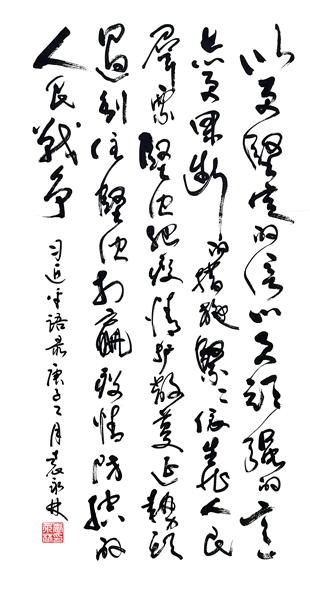 以更坚定的信心更顽强的意
志更果断的措施紧紧依靠人民
群众坚决把疫情扩散蔓延势头
遏制住坚决打赢疫情防控的
人民战争
习近平语录庚子二月袁永林